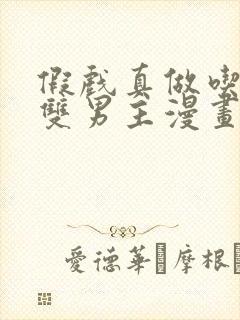 假戲真做喫
雙男主漫畫
愛德華 摩根